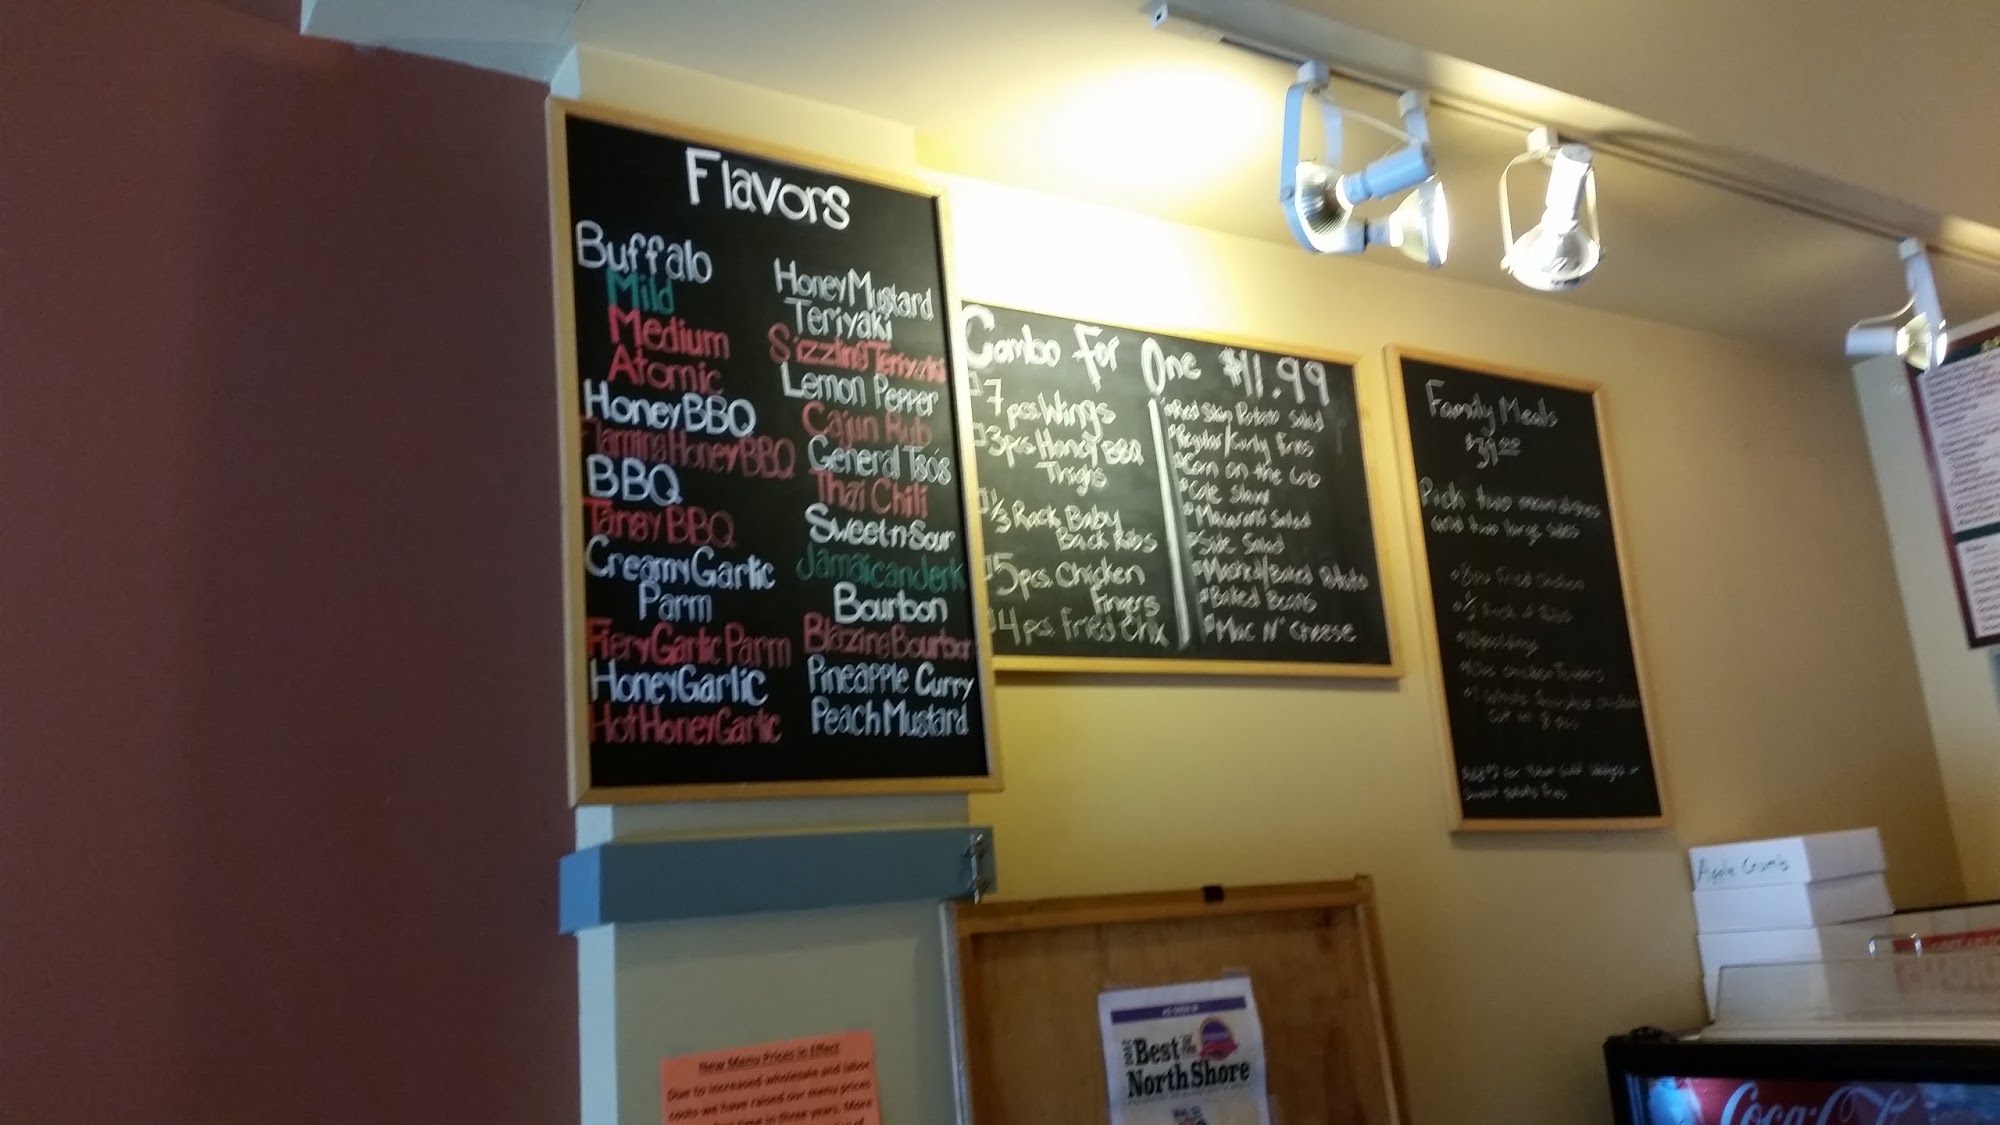 Flavors
Buffalo
Mild
Medium
Atomic
Honey BBQ
Flaming Honey BBQ
BBQ
Tangy BBQ
Creamy Garlic
Parm
Fiery Garlic Parm
Honey Garlic
Hot Honey Garlic
Honey Mustard
Teriyaki
Sizzling Teriyaki
Lemon Pepper
Cajun Rub
General Tso's
Thai Chili
Sweet n Sour
Jamaican Jerk
Bourbon
Blazing Bourbon
Pineapple Curry
Peach Mustard
Combo For One $11.99
7 pcs Wings
3pcs Honey BBQ
Thighs
1/3 Rack Baby
Back Ribs
5pcs Chicken
Fingers
4 pcs Fried Chix
Red Skin Potato Salad
Regular/Curly Fries
Corn on the Cob
Cole Slaw
Macaroni Salad
Side Salad
Mashed/Baked Potato
Baked Beans
Mac N' Cheese
Family Meals
$39.00
Pick two main dishes
and two large sides
8pcs Fried Chicken
1/2 Rack of Ribs
Chicken Tenders
1 Whole Chicken
Cut in 8
sweet potato fries
Apple Crumb
New Menu Prices in Effect
Due to increased wholesale and labor
costs we have raised our menu prices
time in three years. More
AS SEEN IN
Best OF THE
North Shore
Coca-Cola